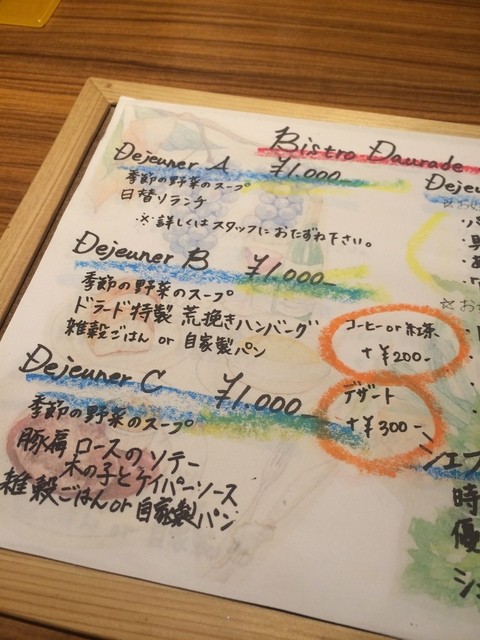 Bistro Daurade
Dejeuner A ¥1,000
季節の野菜のスープ
日替りランチ
※詳しくはスタッフにおたずね下さい。
Dejeuner B ¥1,000-
季節の野菜のスープ
ドラード特製 荒挽きハンバーグ
雑穀ごはん or 自家製パン
コーヒー or 紅茶
+¥200-
Dejeuner C ¥1,000-
季節の野菜のスープ
豚肩ロースのソテー
木の子とケイパーソース
雑穀ごはん or 自家製パン
デザート
+¥300-
Dejeu
シェフ
時
優